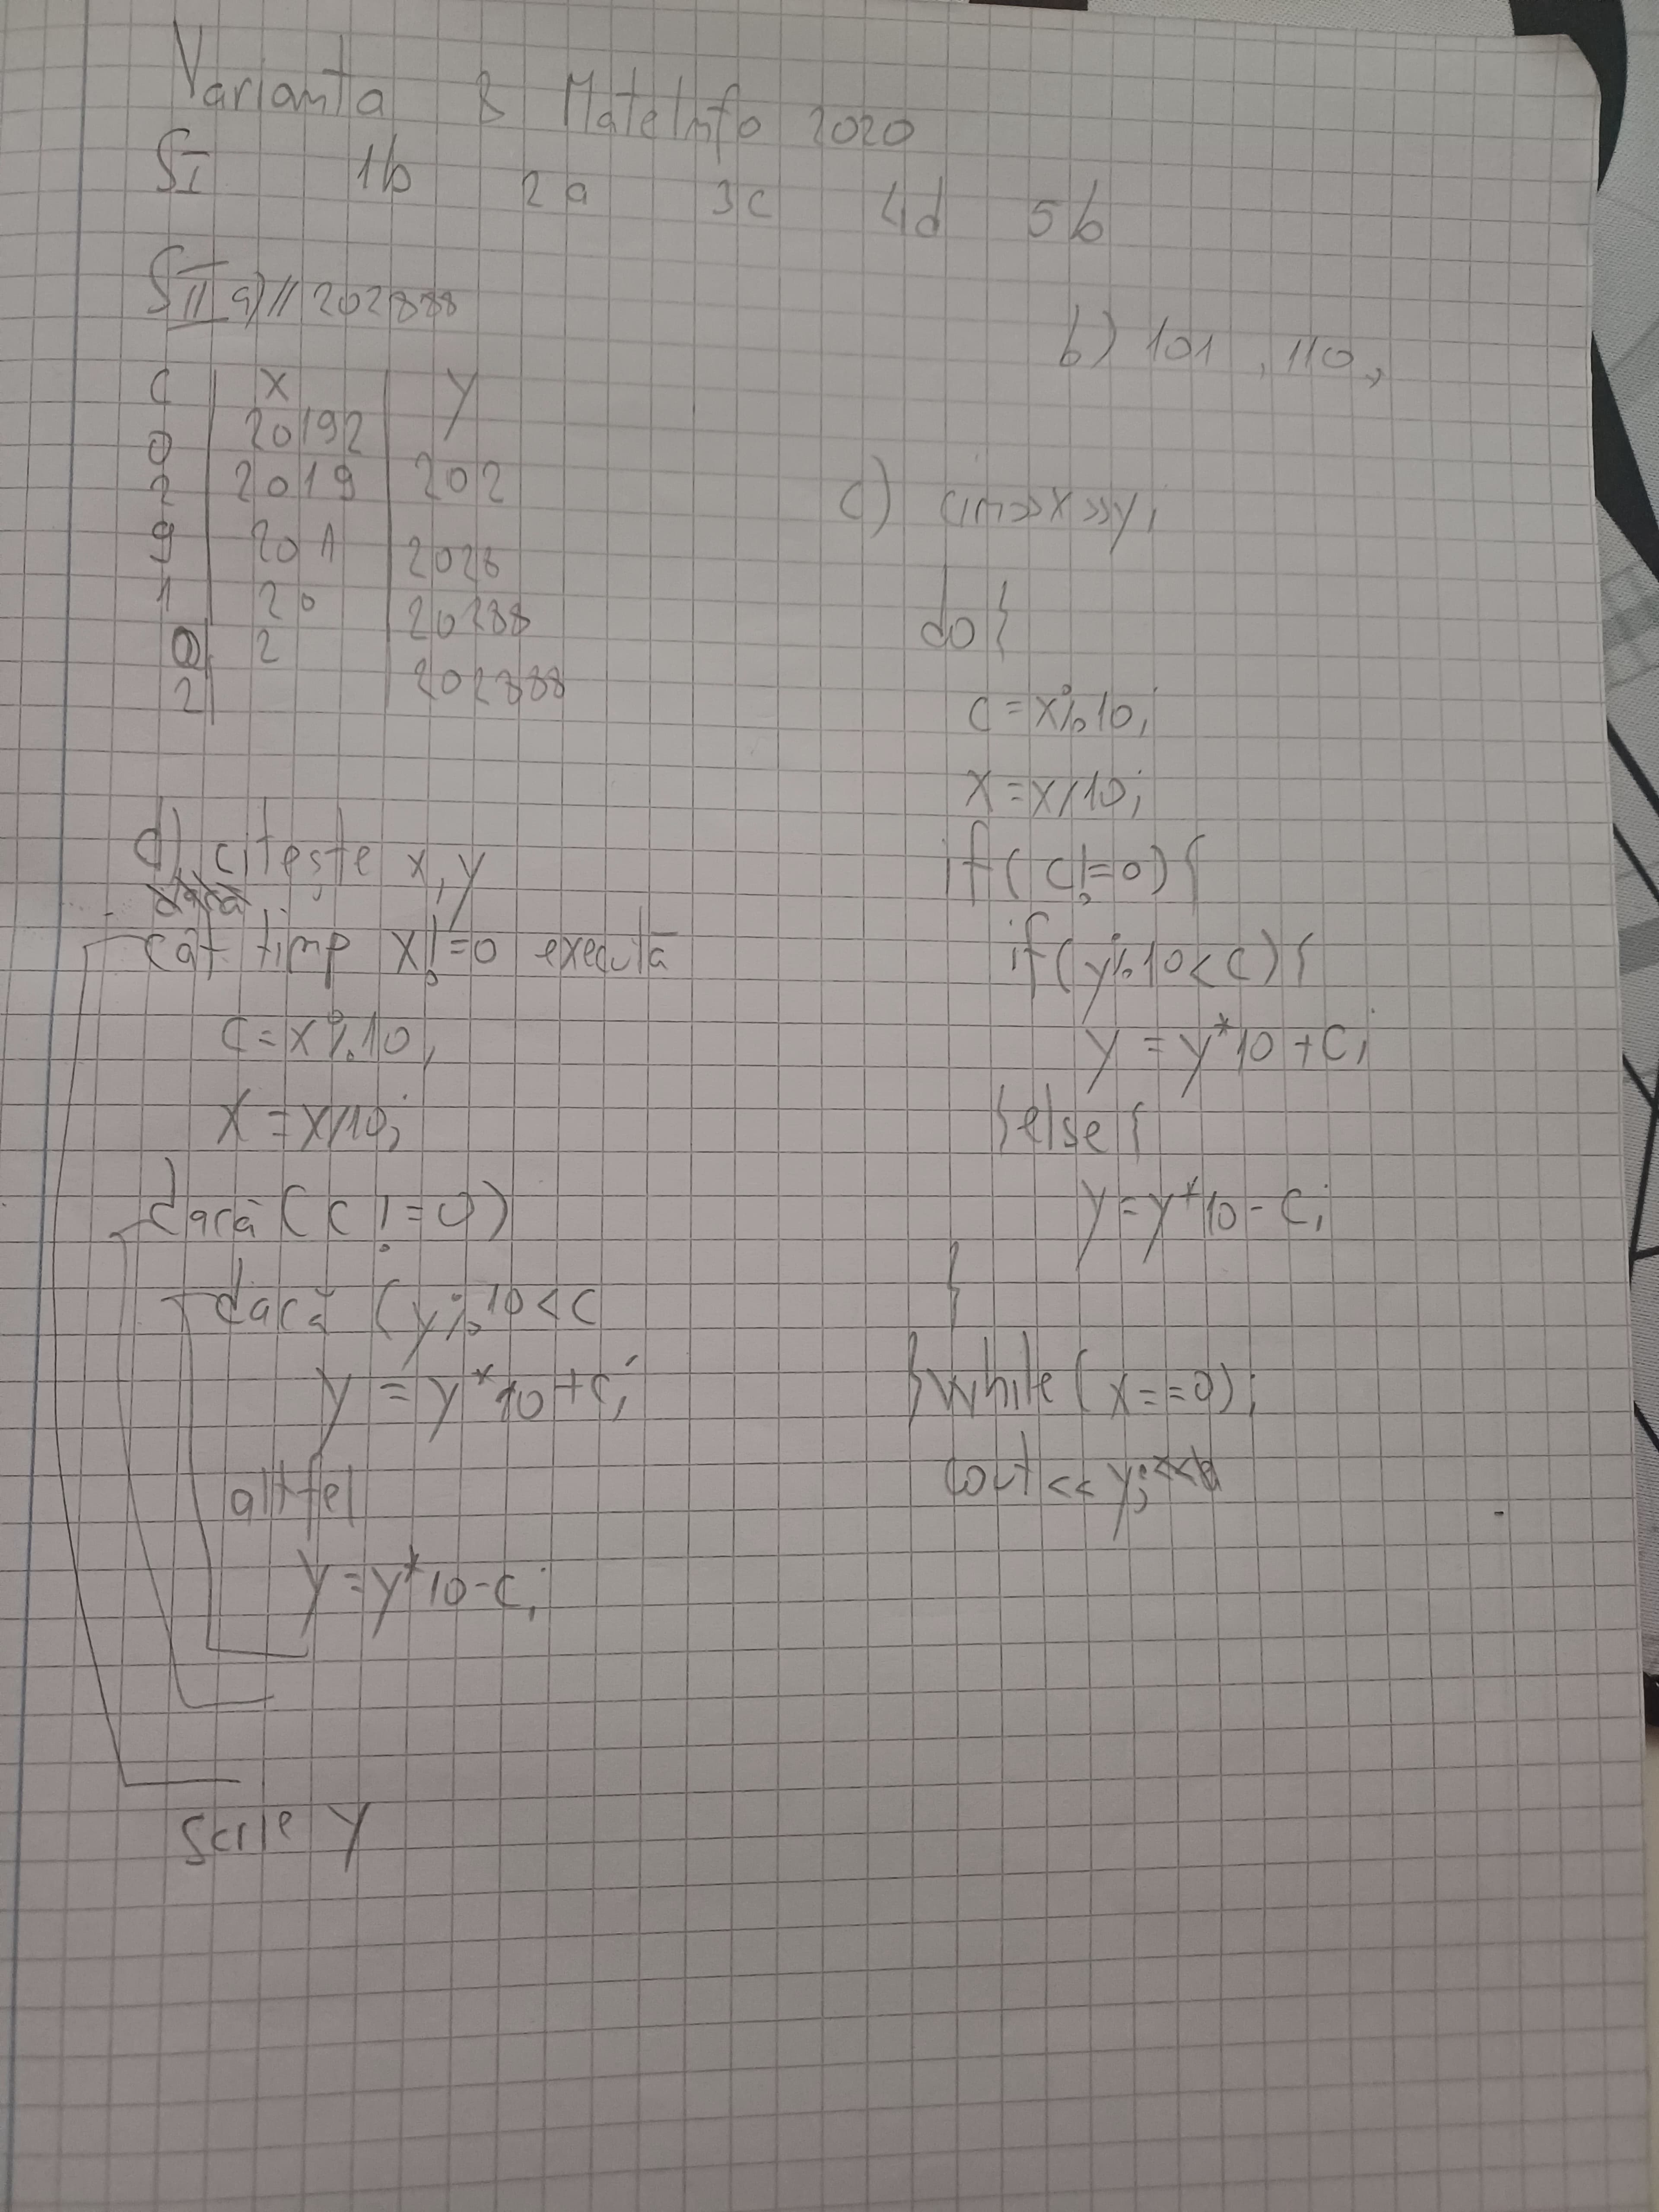 Varianta 8 MateInfo 2020
SI 1b 2a 3c 4d 5b
SII a) // 202888
b) 101, 110,
c x y
0 20192
2 2019 202
9 201 2028
1 20 20288
0 2
2 202888
c) cin>>x>>y;
do{
c=x%10;
x=x/10;
if(c!=0){
if(y%10<c){
y=y*10+c;
}else{
y=y*10-c;
}
}while(x==0);
cout<<y;
d) citește x,y
cât timp x!=0 execută
c=x%10;
x=x/10;
dacă (c!=0)
dacă (y%10<c
y=y*10+c;
altfel
y=y*10-c;
scrie y